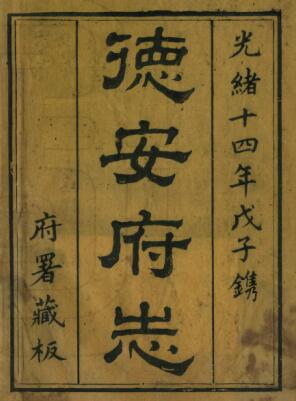 光緒十四年戊子鐫
德安府志
府署藏板